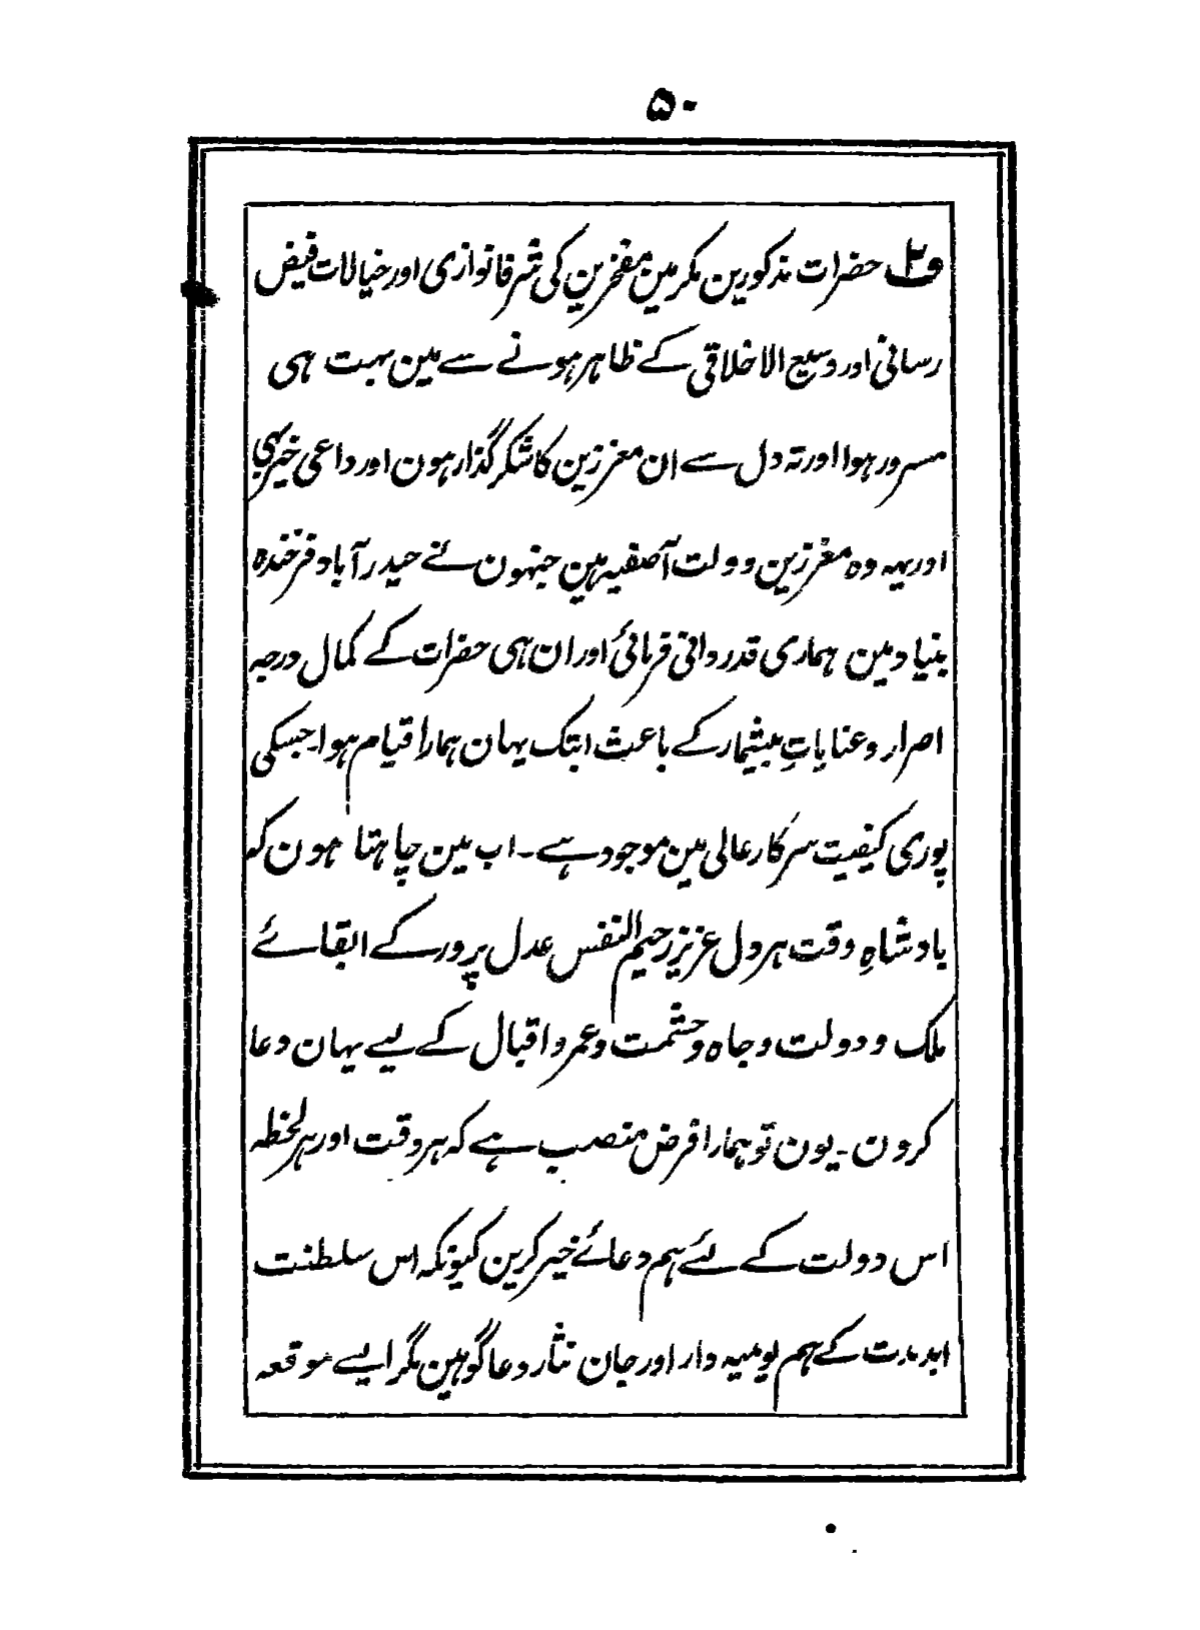 ۵۰
ف۲ حضرات مذکورین مکرمین مفخرین کی شرفانوازی اور خیالات فیض
رسانی اور وسیع الاخلاقی کے ظاہر ہونے سے مین بہت ہی
مسرور ہوا اور تہ دل سے ان معززین کا شکر گذار ہون اور داعی خیر بہی
اور یہہ وہ معززین دولت آصفیہ ہین جنہون نے حیدرآباد فرخندہ
بنیاد مین ہماری قدردانی فرمائی اور ان ہی حضرات کے کمال درجہ
اصرار و عنایاتِ بیشمار کے باعث ابتک یہان ہمارا قیام ہوا۔ جسکی
پوری کیفیت سرکار عالی مین موجود ہے۔ اب مین چاہتا ہون کہ
بادشاہِ وقت ہر دل عزیز رحیم النفس عدل پرور کے ابقائے
ملک و دولت و جاہ و حشمت و عمر و اقبال کے لیے یہان دعا
کرون۔ یون تو ہمارا فرض منصب ہے کہ ہر وقت اور ہر لحظہ
اس دولت کے لئے ہم دعائے خیر کرین کیونکہ اس سلطنت
ابد مدت کے ہم یومیہ دار اور جان نثار دعا گو ہین مگر ایسے موقعہ